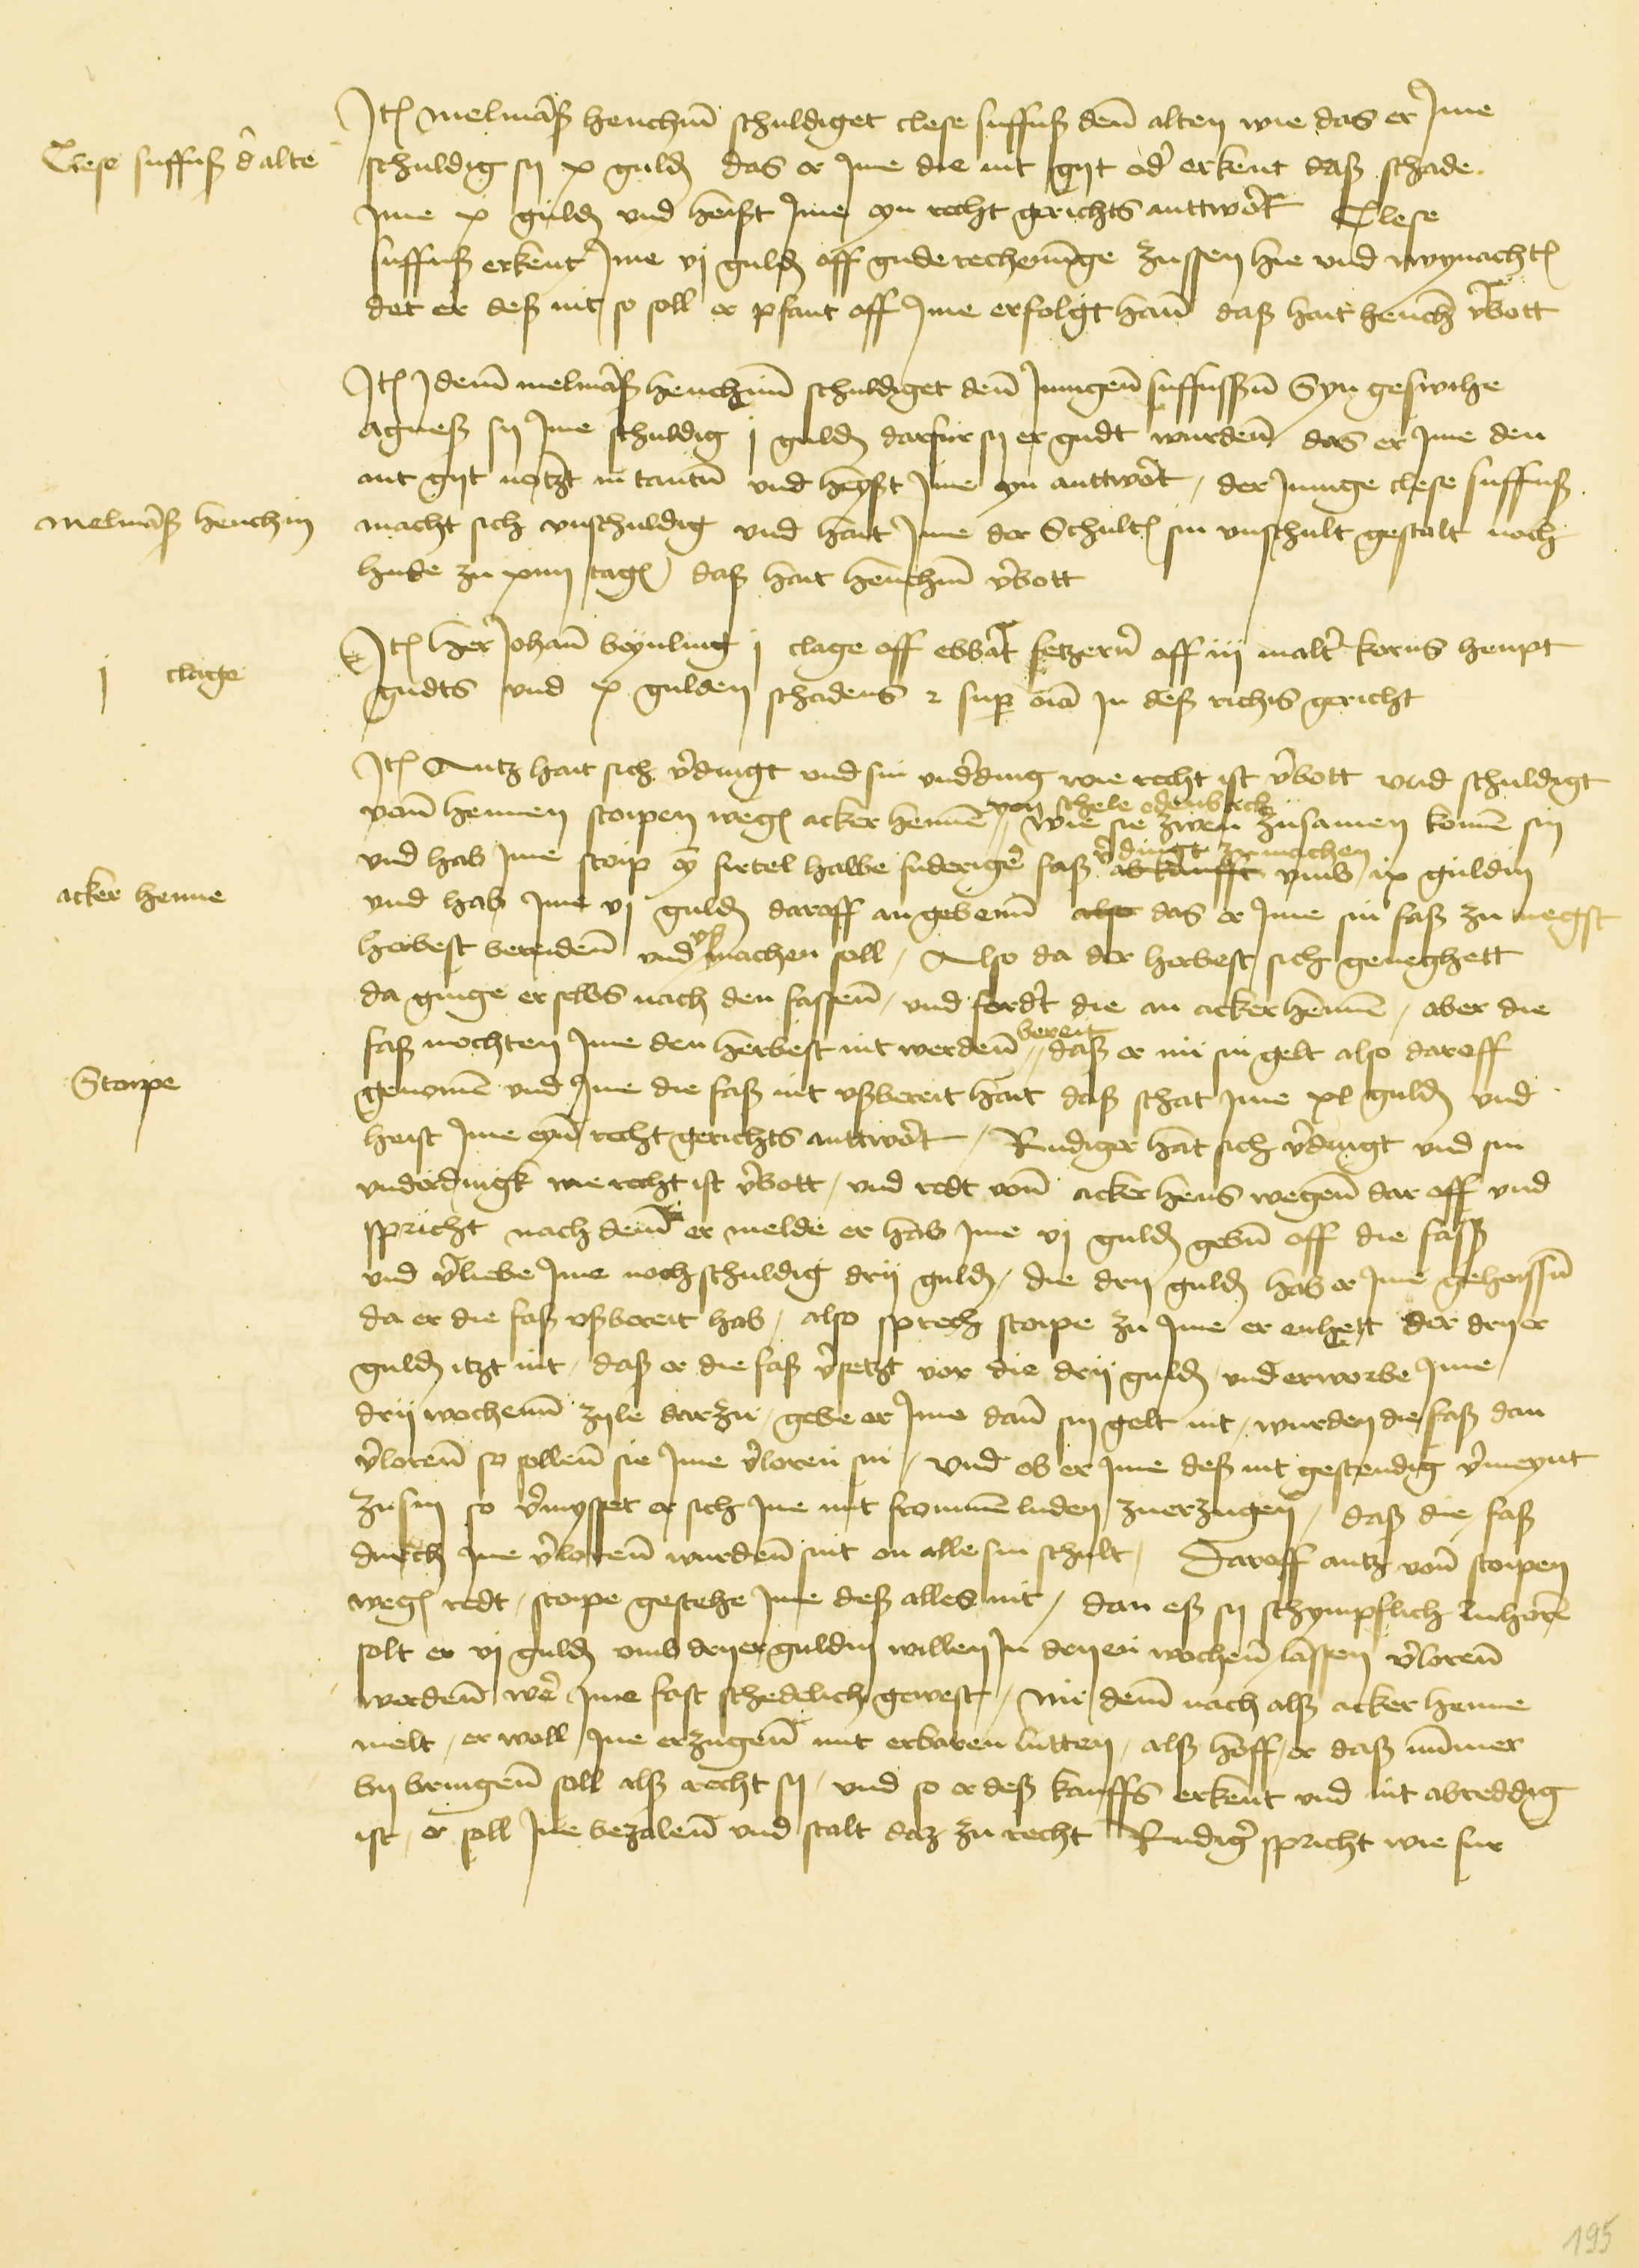 Jt(em) melma(n)ß henchin schuldiget clese suffuß den alten wie das er Jme
Clese suffuß d' alte
schuldig sy x guld(en) das er Jme die nit gijt od' erkent daß schade
Jme x guld(en) und heißt Jme eyn recht gerichts anttwo(r)t Clese
suffuß erkent Jme vj guld(en) off gude rechenu(n)ge zussen hie und wynacht(en)
det er deß nit so soll er pfant off Jme erfolgt han daß hait hench(in) v(er)bott
Jt(em) Jdem melma(n)ß henchin schuldiget den Jungen suffussen Syn geswihe
agneß sy Jme schuldig j guld(en) darfur sy er gudt wurden das er Jme den
nit gijt notzt in tantu(m) und heyßt Jme eyn anttwo(r)t / der Junge clese suffuß
melma(n)ß henchin
macht sich unschuldig und hait Jme der Schult(eß) sin unschult gestalt noch
hude zu xiiij tag(en) daß hait henchin v(er)bott
j clage
Jt(em) her Joha(n) beynling j clage off ebba(r)t setzern off iij malt(er) korns heupt
gudts und x gulden schadens & sup(er) o(mn)ia in deß richs gericht
Jt(em) Antz hait sich v(er)dingt und sin und(er)ding wie recht ist v(er)bott und schuldigt
von hennen stoipen weg(en) acker henne(n) von schele odenbach wie sie zwen zusamen kome(n) sin
und hab Jme stoip ey(n) firtel halbe fuderig(er) faß abkaufft v(er)dingt zu machen umb ix guldin
acker henne
und hab Jme vj guld(en) daroff an geben also das er Jme sin faß zu negst
herbest bereiden und uß machen soll / Also da der herbest sich geneghett
da ginge er selbs nach den fassen / und ford(er)t die an acker henne(n) / aber die
faß mochten Jme den herbest nit werden bereit / daß er nu sin gelt also daroff
Stoipe
genome(n) und Jme die faß nit ußbereit hait daß schat Jme xl guld(en) und
heist Jme eyn recht gerichts anttwo(r)t / Rudiger hat sich v(er)dingt und sin
underdingk wie recht ist v(er)bott / und redt von acker hens wegen dar off und
spricht nach dem er melde er hab Jme vj guld(en) gebe(n) off die faß
und v(er)liebe Jme noch schuldig drij guld(en) / die drij guld(en) hab er Jme geheissen
da er die faß ußbereit hab / also sprech stoipe zu Jme er enhett der dryer
guld(en) itzt nit / daß er die faß v(er)setzt vor die drij guld(en) / und erworbe Jme
drij wochenn zyle darzu / gebe er Jme dan sin gelt nit / wurden die faß dan
v(er)loren so sollen sie Jme v(er)loren sin / Und ob er Jme deß nit gestendig v(er)meynt
zu sin so v(er)mysset er sich Jne mit fromme(n) luden zuerzugen / daß die faß
durch Jne v(er)loren wurden sint on alle sin schult / Daroff antz von stoipen
weg(en) redt / stoipe gestehe Jme deß alles nit / dan eß sy schympflich zuhoren
solt er vj guld(en) umb dryer guldin willen in dryen wochen lassen v(er)loren
werden we(r) Jme fast schedelich gewest / Nu dem nach alß acker henne
melt / er woll Jne erzugen mit erbaren lutten / alß hoff er daß nummer
by bringen soll alß recht sy / und so er deß kauffs erkent und nit abreddig
ist / er soll Jne bezalen und stalt daz zu recht Rudig(er) spricht wie fur
195